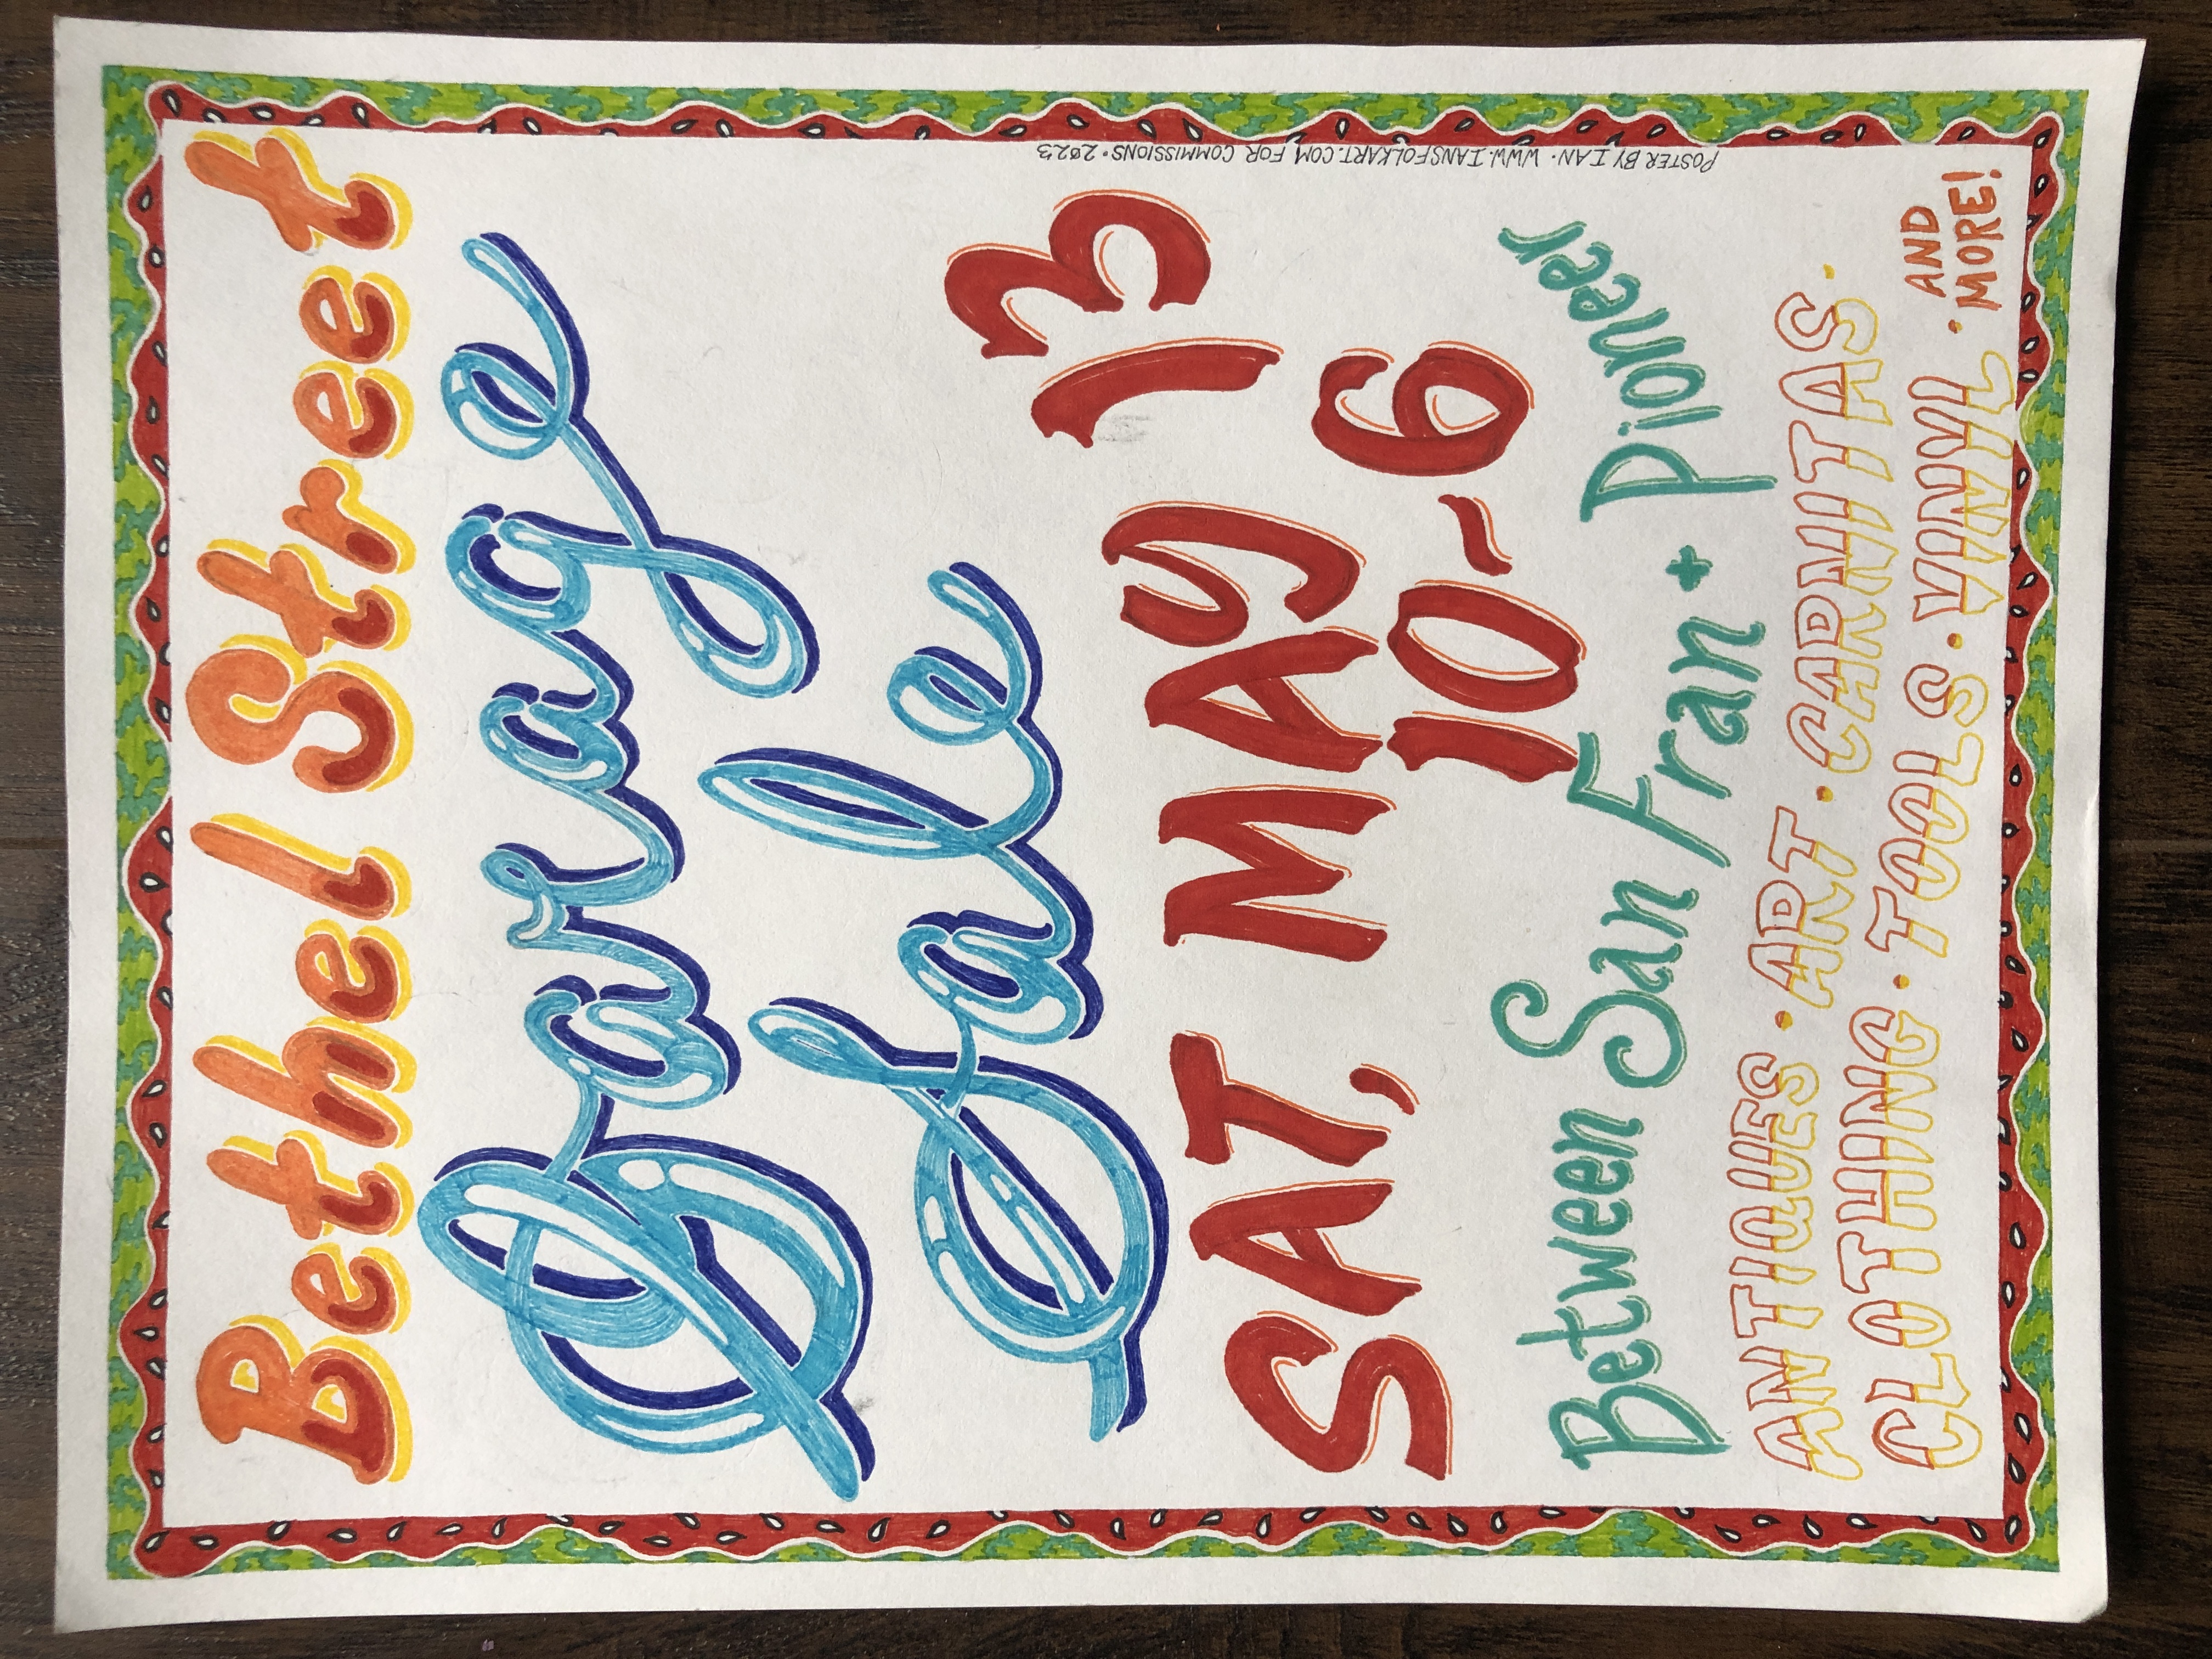 Bethel Street
Garage
Sale
SAT, MAY 13
10-6
Between San Fran + Pioneer
ANTIQUES · ART · CARNITAS ·
CLOTHING · TOOLS · VINYL · AND MORE!
POSTER BY IAN · WWW.IANSFOLKART.COM FOR COMMISSIONS · 2023